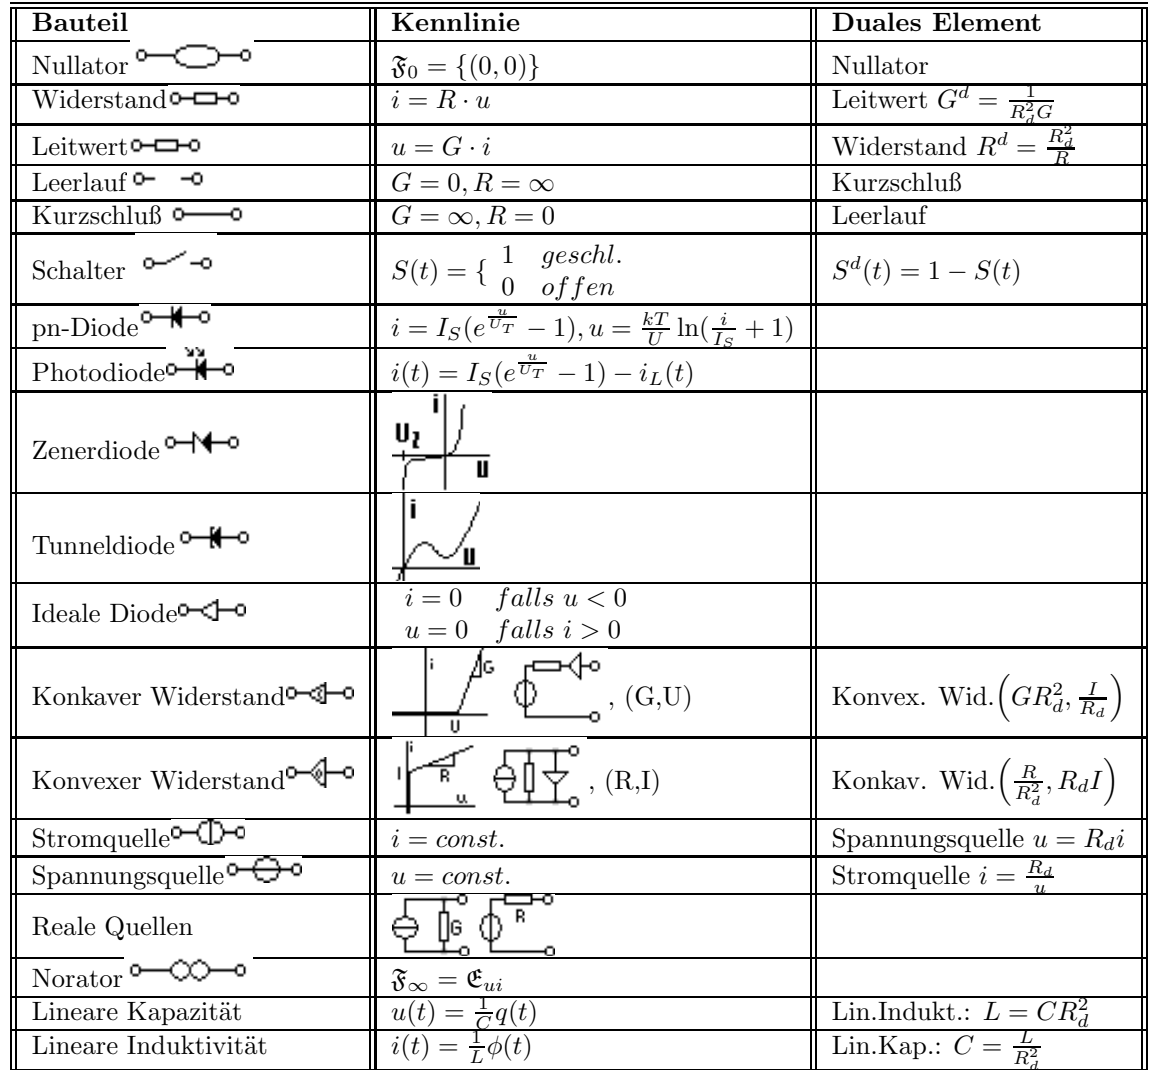 Bauteil Kennlinie Duales Element
Nullator $\mathfrak{F}_0 = \{(0,0)\}$ Nullator
Widerstand $i = R \cdot u$ Leitwert $G^d = \frac{1}{R_d^2 G}$
Leitwert $u = G \cdot i$ Widerstand $R^d = \frac{R_d^2}{R}$
Leerlauf $G = 0, R = \infty$ Kurzschluß
Kurzschluß $G = \infty, R = 0$ Leerlauf
Schalter $S(t) = \{ \begin{array}{ll} 1 & geschl. \\ 0 & offen \end{array}$ $S^d(t) = 1 - S(t)$
pn-Diode $i = I_S(e^{\frac{u}{U_T}} - 1), u = \frac{kT}{U} \ln(\frac{i}{I_S} + 1)$
Photodiode $i(t) = I_S(e^{\frac{u}{U_T}} - 1) - i_L(t)$
Zenerdiode i U_Z U
Tunneldiode i U
Ideale Diode $\begin{array}{ll} i = 0 & falls\ u < 0 \\ u = 0 & falls\ i > 0 \end{array}$
Konkaver Widerstand i G U , (G,U) Konvex. Wid. $\left(GR_d^2, \frac{I}{R_d}\right)$
Konvexer Widerstand i I R u , (R,I) Konkav. Wid. $\left(\frac{R}{R_d^2}, R_d I\right)$
Stromquelle $i = const.$ Spannungsquelle $u = R_d i$
Spannungsquelle $u = const.$ Stromquelle $i = \frac{R_d}{u}$
Reale Quellen G R
Norator $\mathfrak{F}_\infty = \mathfrak{E}_{ui}$
Lineare Kapazität $u(t) = \frac{1}{C} q(t)$ Lin.Indukt.: $L = CR_d^2$
Lineare Induktivität $i(t) = \frac{1}{L} \phi(t)$ Lin.Kap.: $C = \frac{L}{R_d^2}$